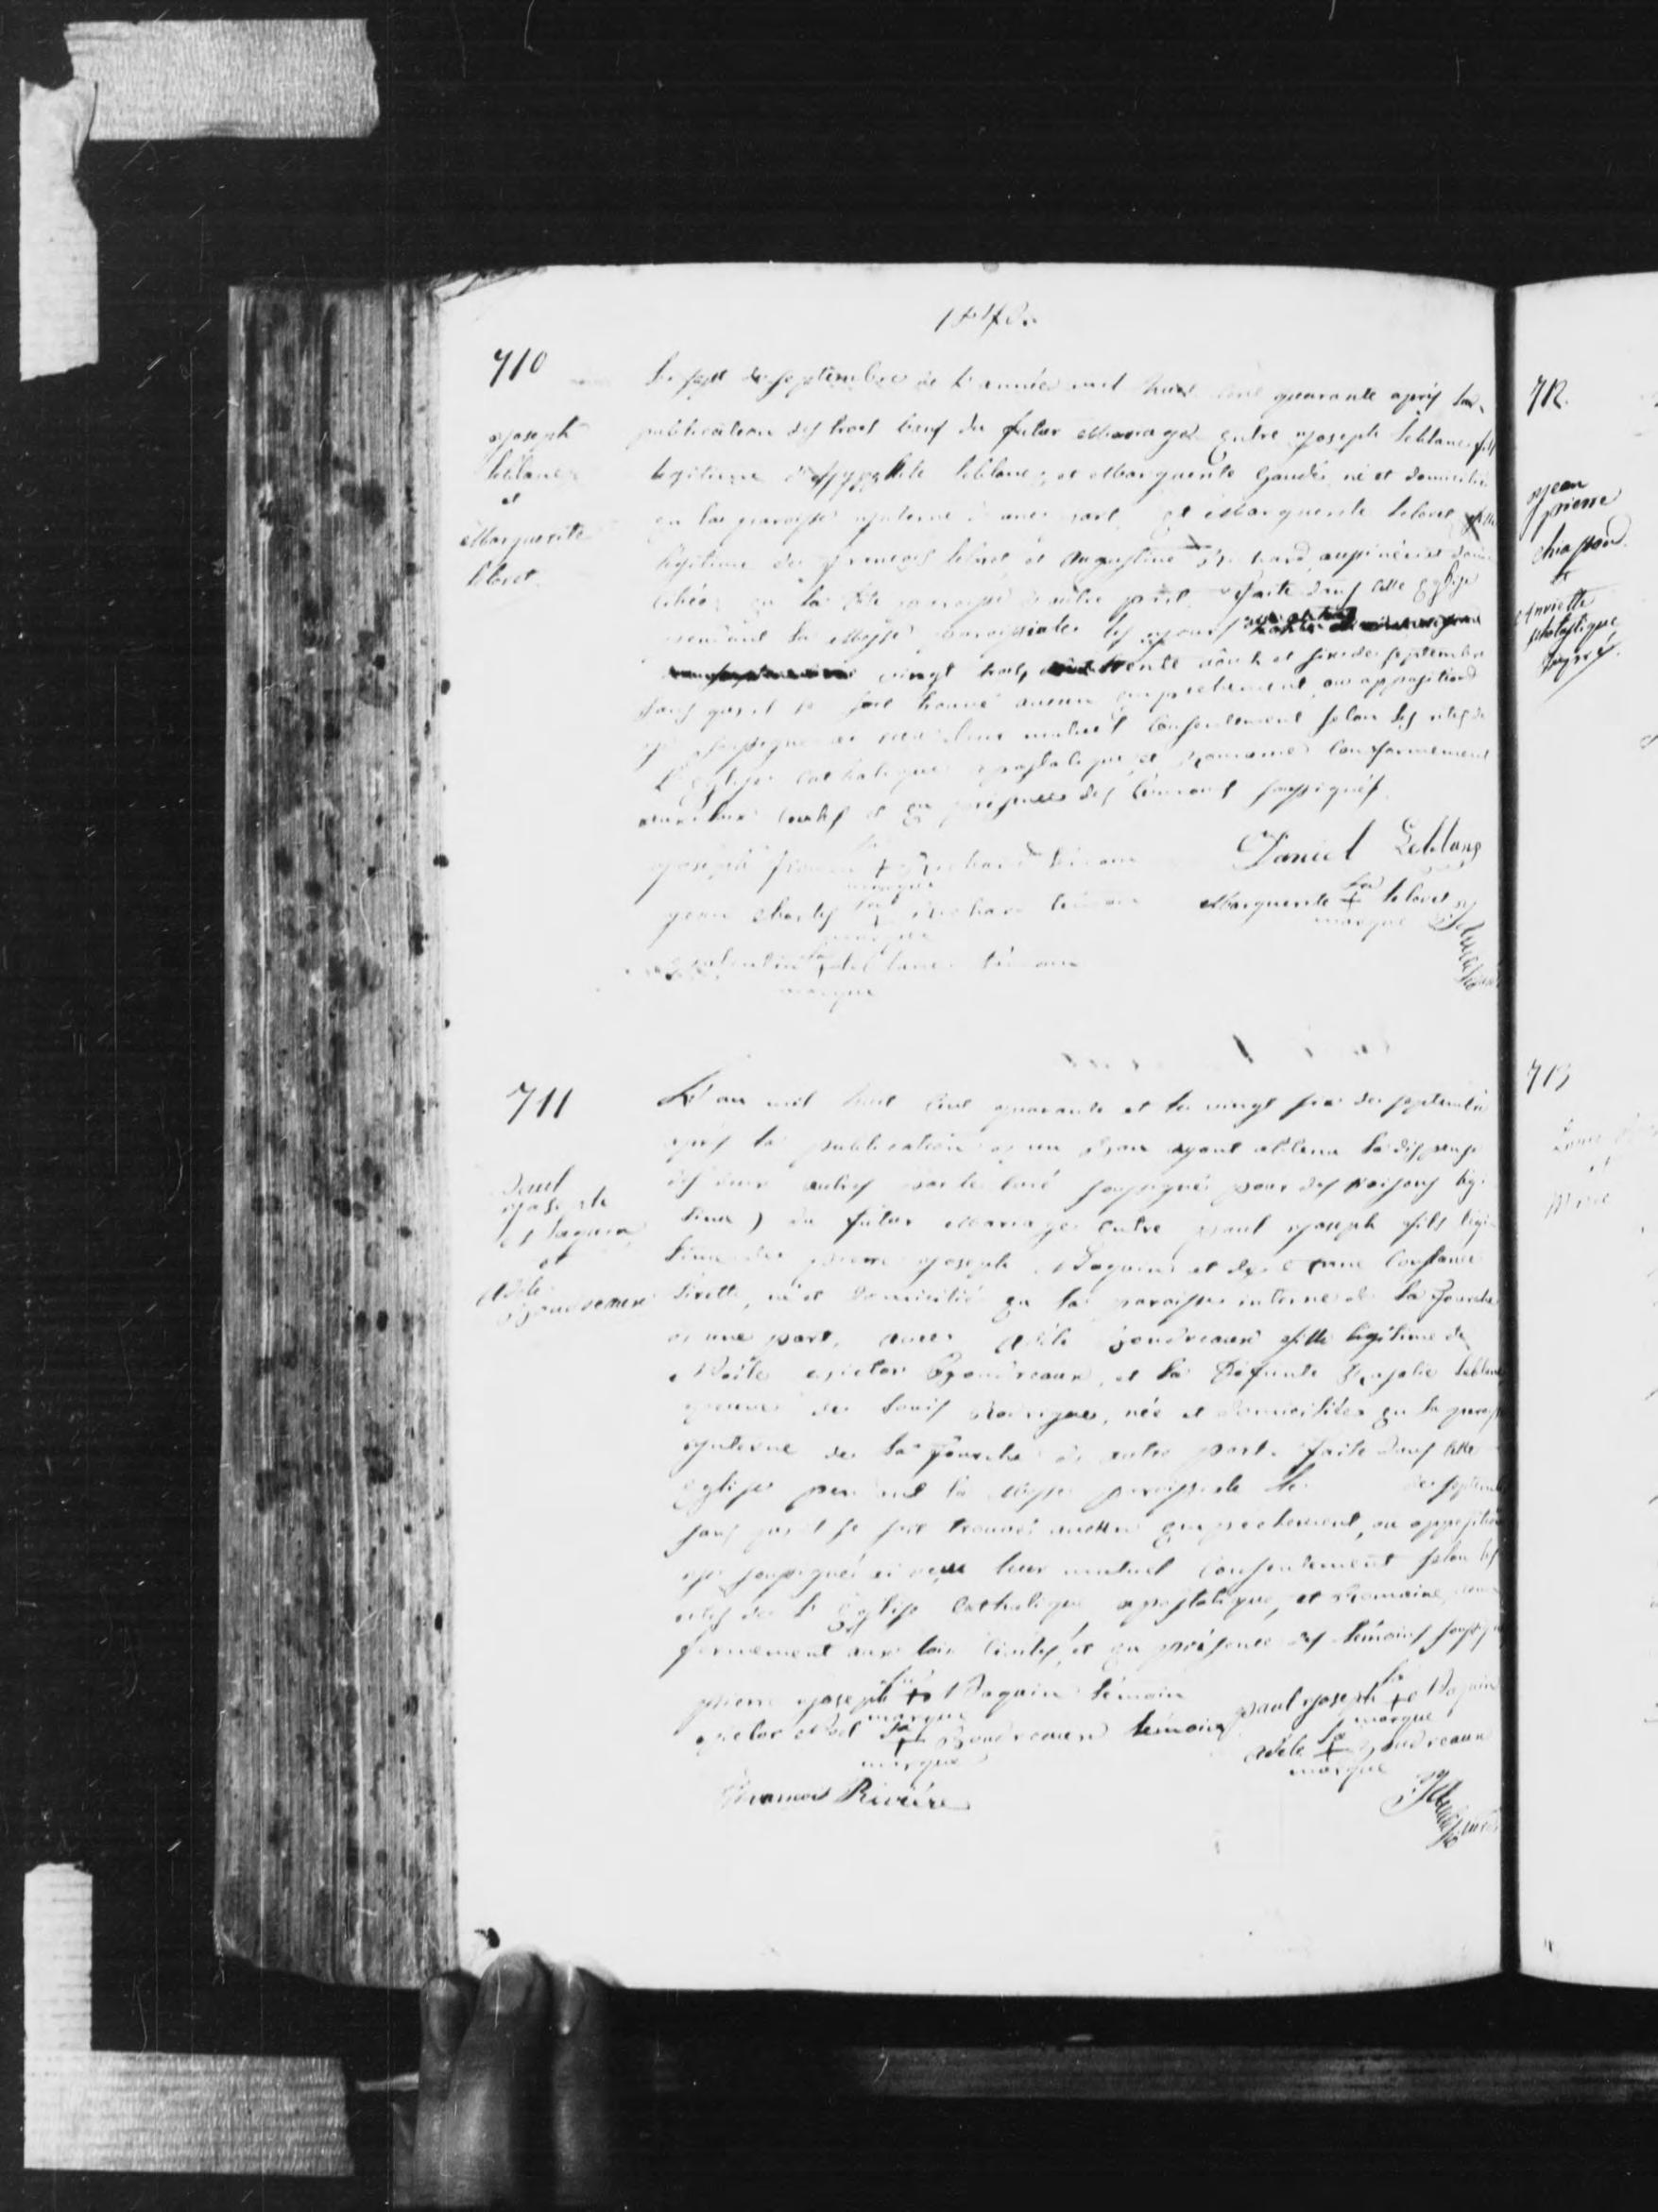 1840.
710
Joseph
leblanc
et
Marguerite
loret
Le sept de septembre de l'année mil huit cent quarante après la
publication des trois bans du futur Mariage entre Joseph leblanc, fils
legitime d'hyppolite leblanc, et Marguerite Gaudé, né et domicilié
en la paroisse interne d'une part et Marguerite leloret fille
legitime de francois leloret et Augustine Richard, aussi née et domi
ciliée en la dite paroisse d'autre part. faite dans cette Eglise
pendant la Messe paroissiale les jours
vingt trois, trente août et six de septembre
sans qu'il se soit trouvé aucun empechement, ou opposition
je soussigné ai reçu leur mutuel consentement selon les rites de
L'Eglise Catholique apostolique, et Romaine conformement
aux loix civiles et en présence des témoins soussignés.
Joseph sa + Richard témoin
marque
Daniel Leblanc
jean charles sa + Richard témoin
marque
Marguerite sa + leloret
marque
valentin sa + leblanc témoin
marque
711
paul
joseph
Daguin
et
Adele
Boudreaux
L'an mil huit cent quarante et le vingt six de septembre
après la publication d'un ban ayant obtenu la dispense
des deux autres par le curé soussigné pour des raisons légi
times) du futur Mariage entre paul joseph fils légi
time de pierre joseph Daguin et de Anne Constance
lirette, né et domicilié en la paroisse interne de la fourche
d'une part, avec Adele Boudreaux fille legitime de
Noële victor Boudreaux, et la Défunte Rosalie leblanc
veuve de louis Rodrigue, née et domiciliée en la paroisse
interne de la fourche d'autre part. faite dans cette
Eglise pendant la Messe paroissiale le de septembre
sans qu'il se soit trouvé aucun empechement, ou opposition
je soussigné ai reçu leur mutuel consentement selon les
rites de L'Eglise Catholique apostolique, et Romaine, con
formement aux loix civiles, et en présence des témoins soussignés
pierre joseph sa + Daguin témoin
marque
paul joseph sa + Daguin
marque
victor Noël sa + Boudreaux témoin
marque
Adele sa + Boudreaux
marque
francois Rivière
712.
jean
pierre
chiasson
et
henriette
scholastique
713
Louis
et
Marie